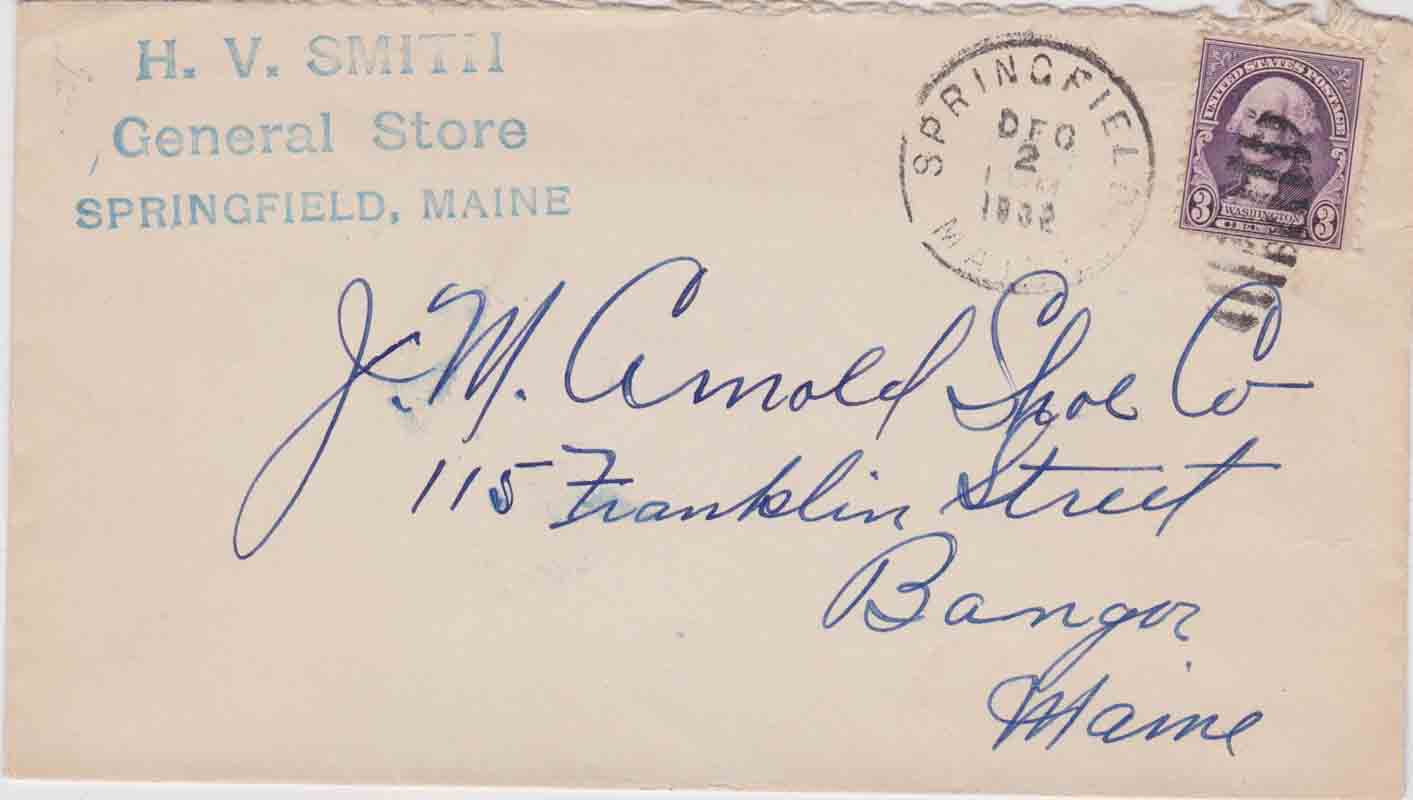 H. V. SMITH
General Store
SPRINGFIELD, MAINE
SPRINGFIELD
DEC
2
1932
MAINE
UNITED STATES POSTAGE
3 WASHINGTON 3
J. M. Arnold Shoe Co
115 Franklin Street
Bangor
Maine